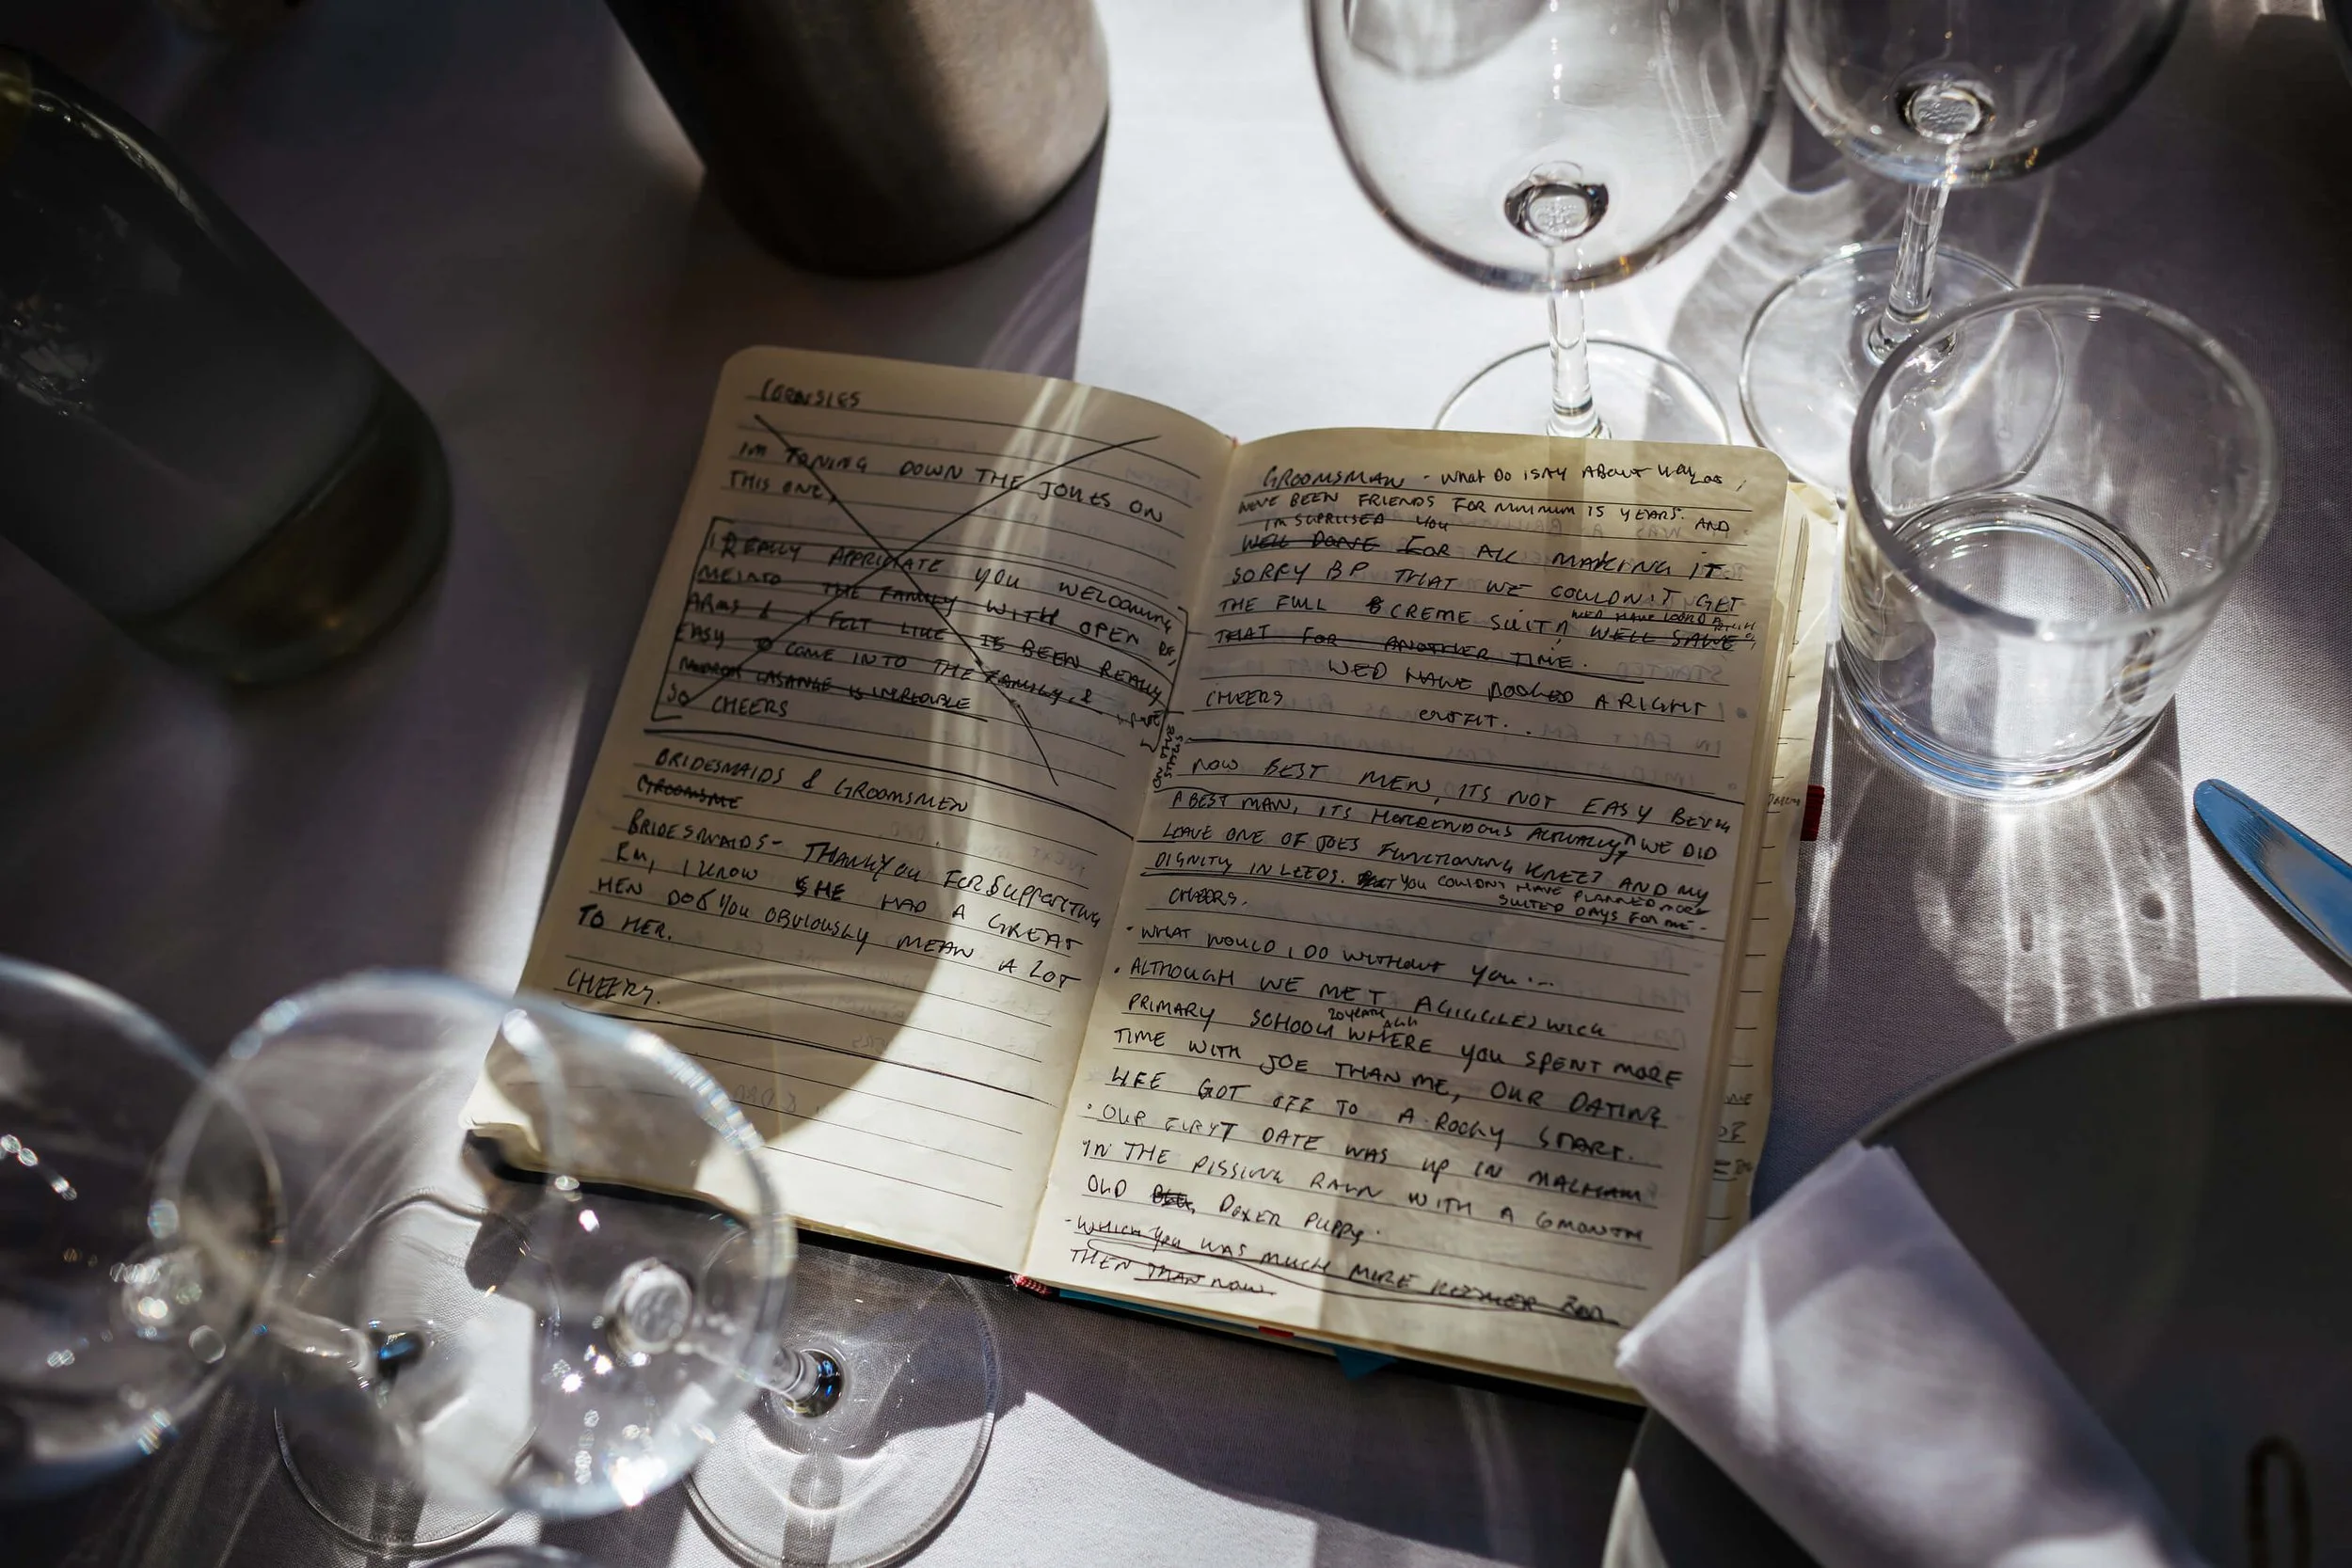 IM TONING DOWN THE JOKES ON
THIS ONE,
I REALLY APPRICIATE YOU WELCOMING
ME INTO THE FAMILY WITH OPEN
ARMS & I FELT LIKE IS BEEN REALLY
EASY TO COME INTO THE FAMILY, &
IS INCREDIBLE
SO CHEERS
BRIDESMAIDS & GROOMSMEN
GROOMSME
BRIDESMAIDS - THANKYOU FOR SUPPORTING
EM, I KNOW SHE HAD A GREAT
HEN DO & YOU OBVIOUSLY MEAN A LOT
TO HER.
CHEERS.
GROOMSMAN - WHAT DO I SAY ABOUT
WEVE BEEN FRIENDS FOR MINIMUM 15 YEARS. AND
IM SUPRISED YOU
WELL DONE FOR ALL MAKING IT
SORRY BP THAT WE COULDN'T GET
THE FULL CREME SUIT, WELL SAVE
THAT FOR ANOTHER TIME.
WED HAVE LOOKED A RIGHT
CHEERS
ON THE STAGS
NOW BEST MEN, ITS NOT EASY BEING
A BEST MAN, ITS HORRENDOUS ACTUALLY, WE DID
LEAVE ONE OF JOES FUNCTIONING KNEES AND MY
DIGNITY IN LEEDS. BUT YOU COULDN'T HAVE PLANNED MORE
SUITED DAYS FOR ME -
CHEERS.
• WHAT WOULD I DO WITHOUT YOU...
• ALTHOUGH WE MET AT
PRIMARY SCHOOL 20 YEARS AGO WHERE YOU SPENT MORE
TIME WITH JOE THAN ME, OUR DATING
LIFE GOT OFF TO A ROCKY START.
• OUR FIRST DATE WAS UP IN MALHAM
IN THE PISSING RAIN WITH A 6 MONTH
OLD BOXER PUPPY.
- WHICH YOU WAS MUCH MORE FOR
THEN THAN NOW